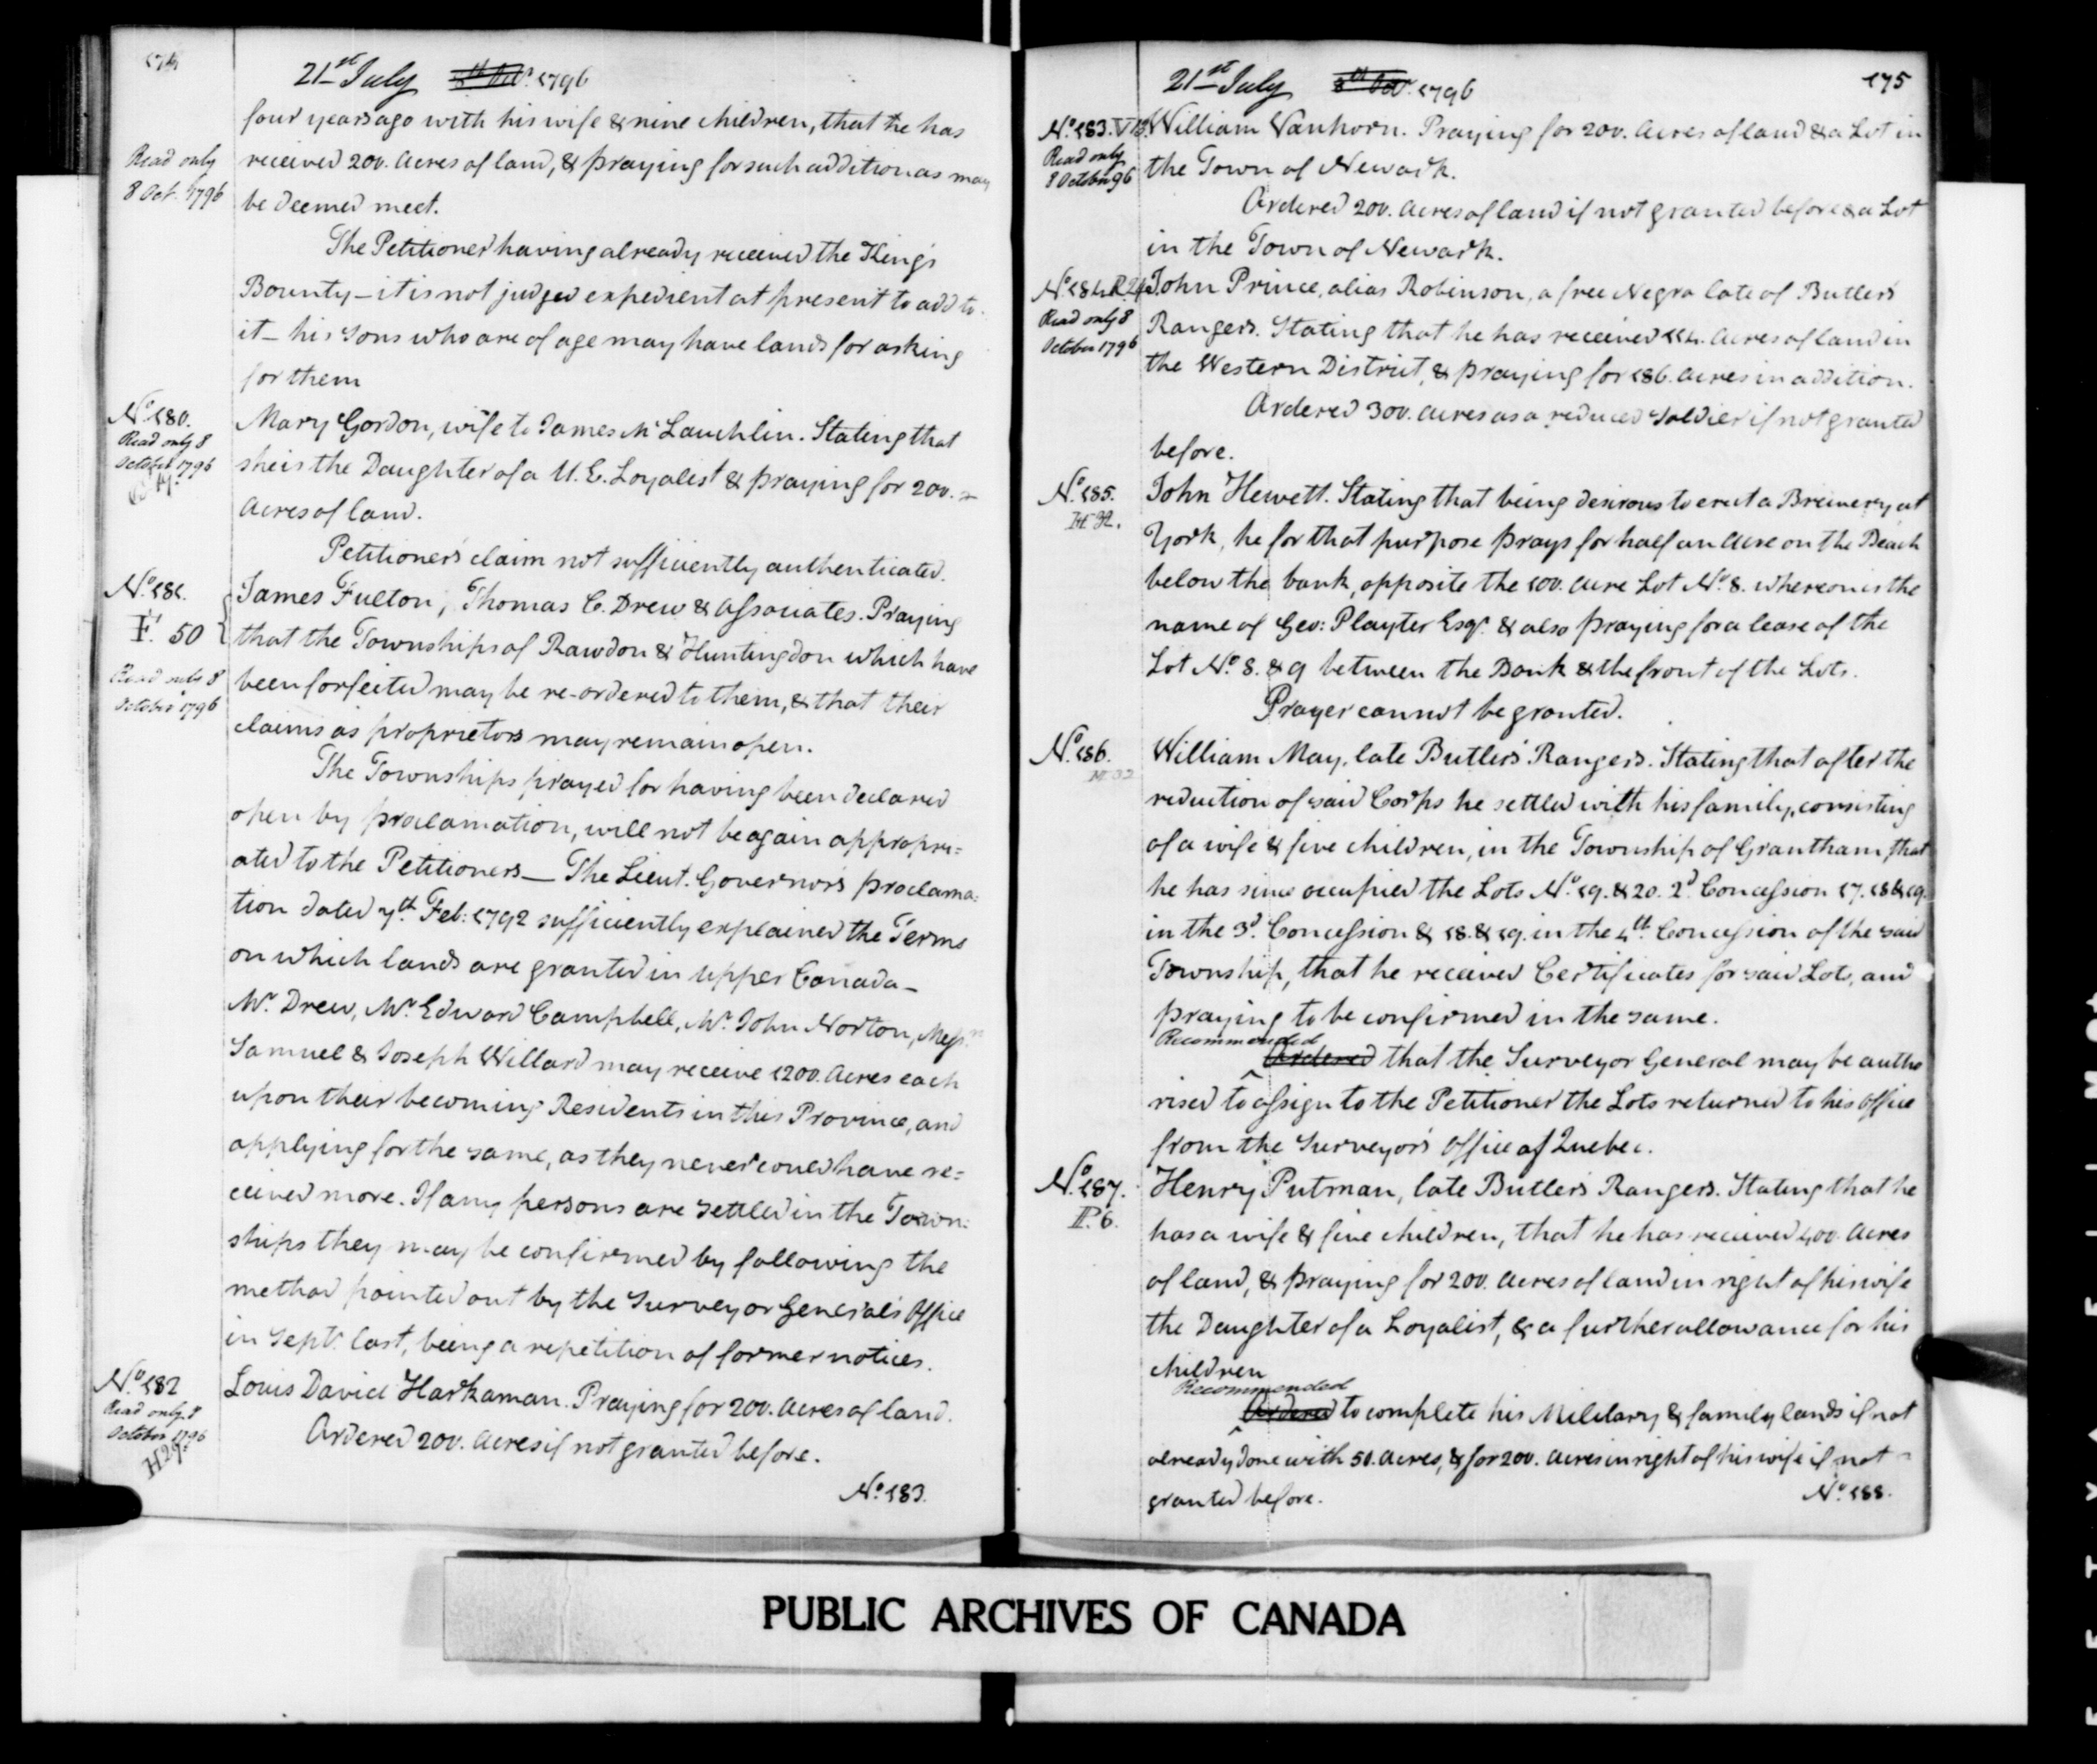 174
21st July 8th Oct. 1796
four years ago with his wife & nine children, that he has
Read only
received 200. Acres of land, & praying for such addition as may
8 Oct. 1796
be deemed meet.
The Petitioner having already received the King's
Bounty - it is not judged expedient at present to add to
it - his Sons who are of age may have lands for asking
for them
No. 180.
Read only 8
October 1796
Mary Gordon, wife to James McLauchlin. Stating that
she is the Daughter of a U. E. Loyalist & praying for 200.
Acres of land.
Petitioner's claim not sufficiently authenticated.
No. 181.
F. 50
Read only 8
October 1796
James Fulton, Thomas C. Drew & Associates. Praying
that the Townships of Rawdon & Huntingdon which have
been forfeited may be re-ordered to them, & that their
claims as proprietors may remain open.
The Townships prayed for having been declared
open by proclamation, will not be again appropri=
ated to the Petitioners — The Lieut. Governor's proclama=
tion dated 7th Feb: 1792 sufficiently explained the Terms
on which lands are granted in Upper Canada -
Mr. Drew, Mr. Edward Campbell, Mr. John Norton, Messrs
Samuel & Joseph Willard may receive 1200. Acres each
upon their becoming Residents in this Province, and
applying for the same, as they never could have re=
ceived more. If any persons are settled in the Town=
ships they may be confirmed by following the
method pointed out by the Surveyor General's Office
in Septr. last, being a repetition of former notices.
No. 182
Read only 8
October 1796
H 29.
Louis David Harkaman. Praying for 200. Acres of land.
Ordered 200. Acres if not granted before.
No. 183.
21st July 8th Oct. 1796
175
No. 183. V 13
Read only
8 October 96
William Vanhorn. Praying for 200. Acres of land & a Lot in
the Town of Newark.
Ordered 200. Acres of land if not granted before & a Lot
in the Town of Newark.
No. 184. R. 24
Read only 8
October 1796
John Prince, alias Robinson, a free Negro late of Butler's
Rangers. Stating that he has received 114. Acres of land in
the Western District, & praying for 186. Acres in addition.
Ordered 300. Acres as a reduced Soldier if not granted
before.
No. 185.
H 32.
John Hewett. Stating that being desirous to erect a Brewery at
York, he for that purpose prays for half an Acre on the Beach
below the bank, opposite the 100. Acre Lot No. 8. whereon is the
name of Geo: Playter Esqr. & also praying for a lease of the
Lot No. 8. & 9 between the Bank & the front of the Lots.
Prayer cannot be granted.
No. 186.
M 32
William May, late Butler's Rangers. Stating that after the
reduction of said Corps he settled with his family, consisting
of a wife & five children, in the Township of Grantham, that
he has since occupied the Lots No. 19. & 20. 2d. Concession 17. 18 & 19.
in the 3d. Concession & 18. & 19. in the 4th. Concession of the said
Township, that he received Certificates for said Lots, and
praying to be confirmed in the same.
Recommended
Ordered that the Surveyor General may be autho
rised to assign to the Petitioner the Lots returned to his Office
from the Surveyor's Office of Quebec.
No. 187.
P. 6.
Henry Putman, late Butler's Rangers. Stating that he
has a wife & five children, that he has received 400. Acres
of land, & praying for 200. Acres of land in right of his wife
the Daughter of a Loyalist, & a further allowance for his
children
Recommended
Ordered to complete his Military & family lands if not
already done with 50. Acres, & for 200. Acres in right of his wife if not
granted before.
No. 188.
PUBLIC ARCHIVES OF CANADA